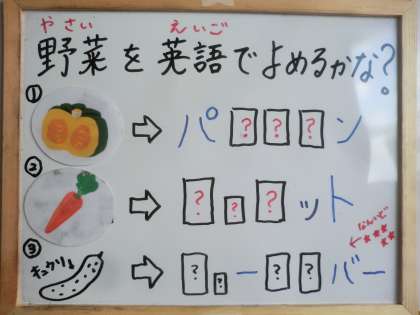 やさい えいご
野菜を英語でよめるかな?
① パ???ン
② ???ット
③ キュウリ ??ー??バー
なんいど
←★★★★★